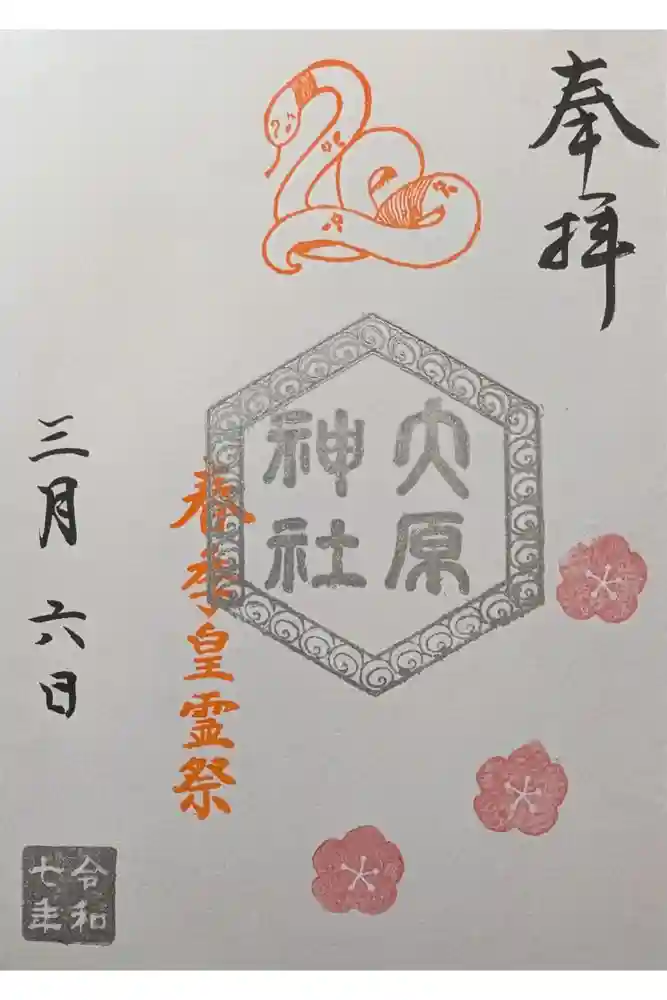 奉拝
大原
神社
春季皇霊祭
三月六日
令和
七年